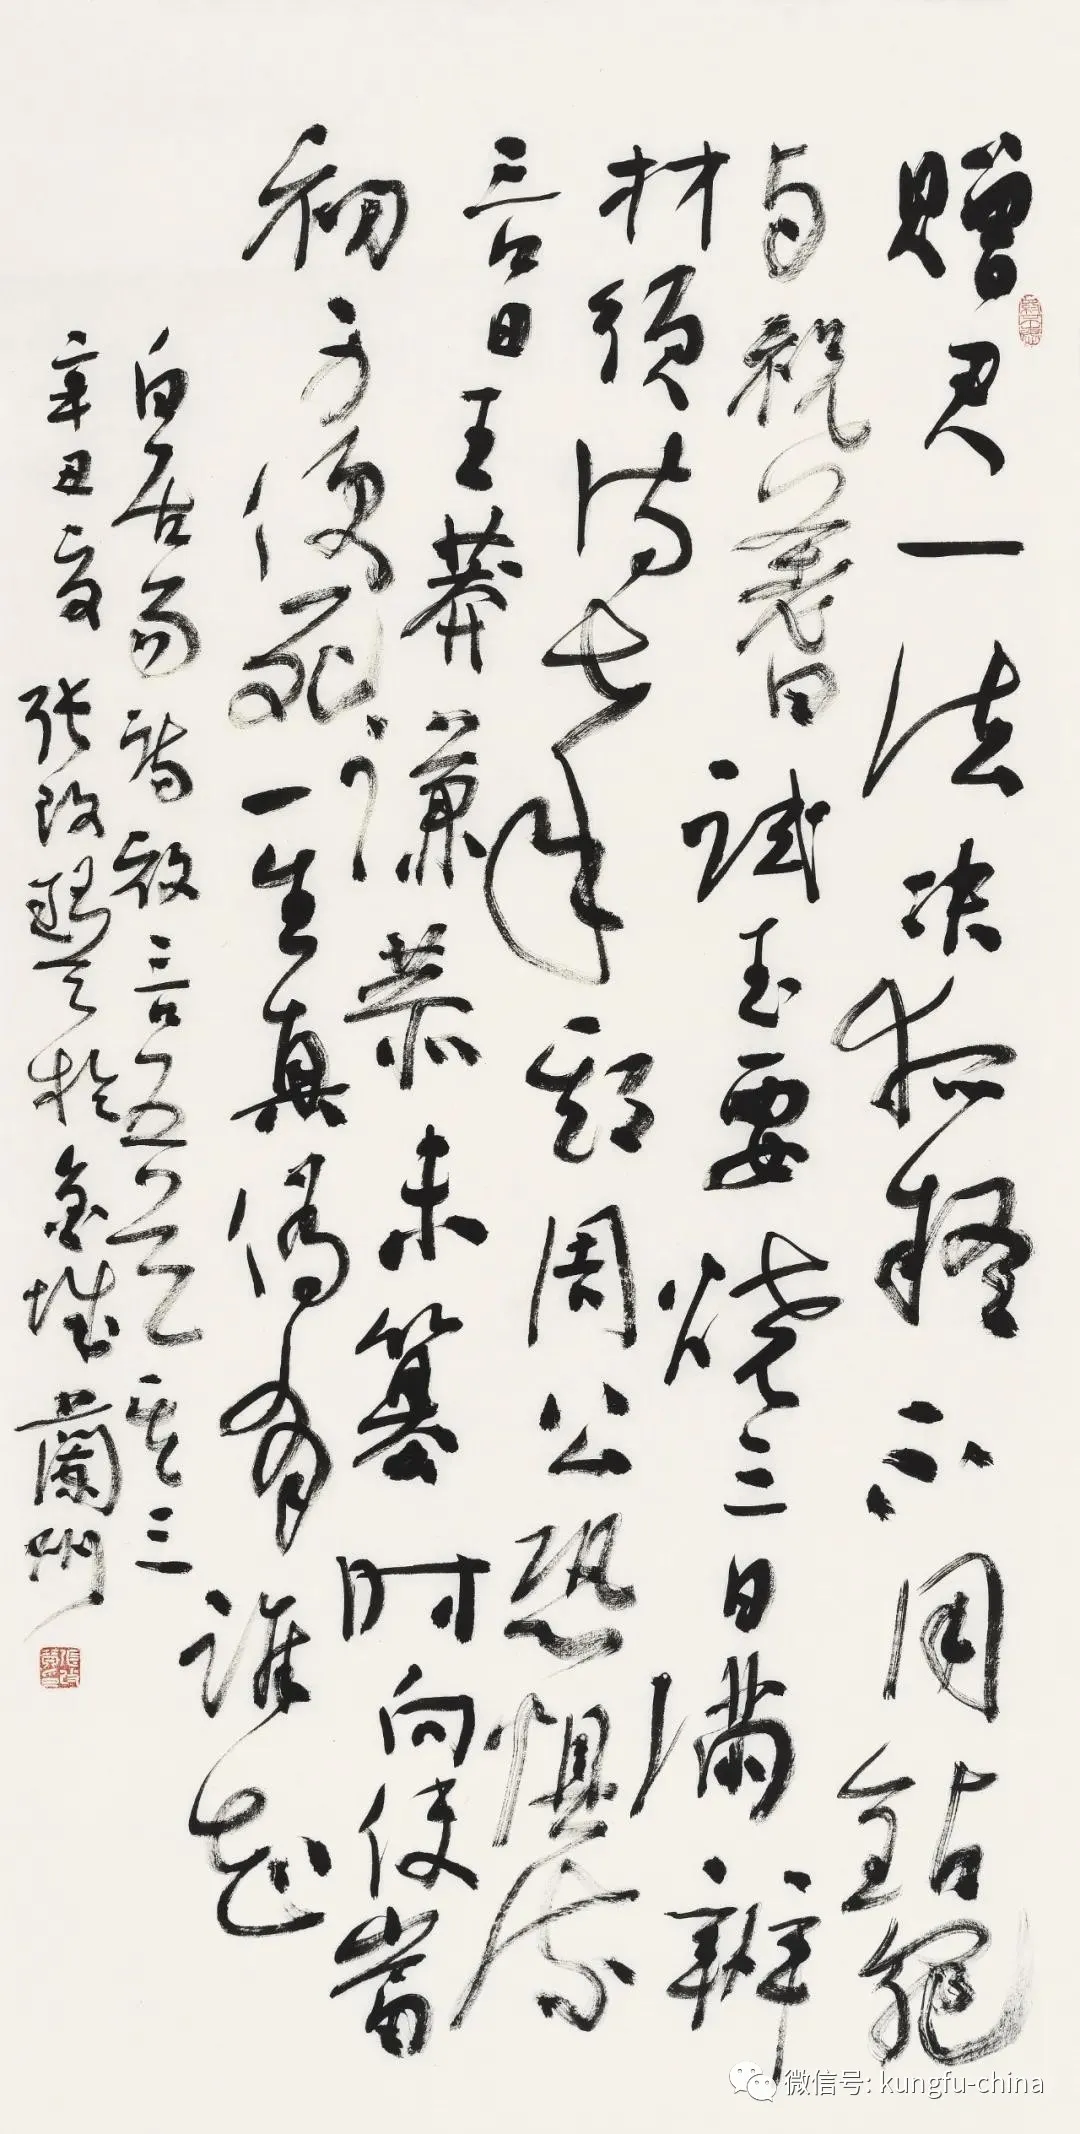 贈君一法决狐疑不用鉆龜
与祝蓍试玉要烧三日满辨
材须待七年期周公恐惧流
言日王莽谦恭未篡时向使當
初身便死一生真偽有谁知
白居易诗放言五首其三
辛丑夏张改琴书於金城蘭州
微信号: kungfu-china